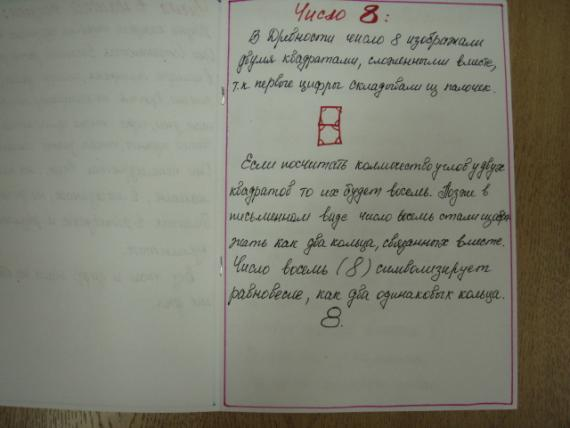 Число 8:
В Древности число 8 изображали
двумя квадратами, сложенными вместе,
т.к первые цифры складывали из палочек.
Если посчитать количество углов у двух
квадратов то их будет восемь. Позже в
письменном виде число восемь стали изобра
жать как два кольца, связанных вместе.
Число восемь (8) символизирует
равновесие, как два одинаковых кольца.
8.